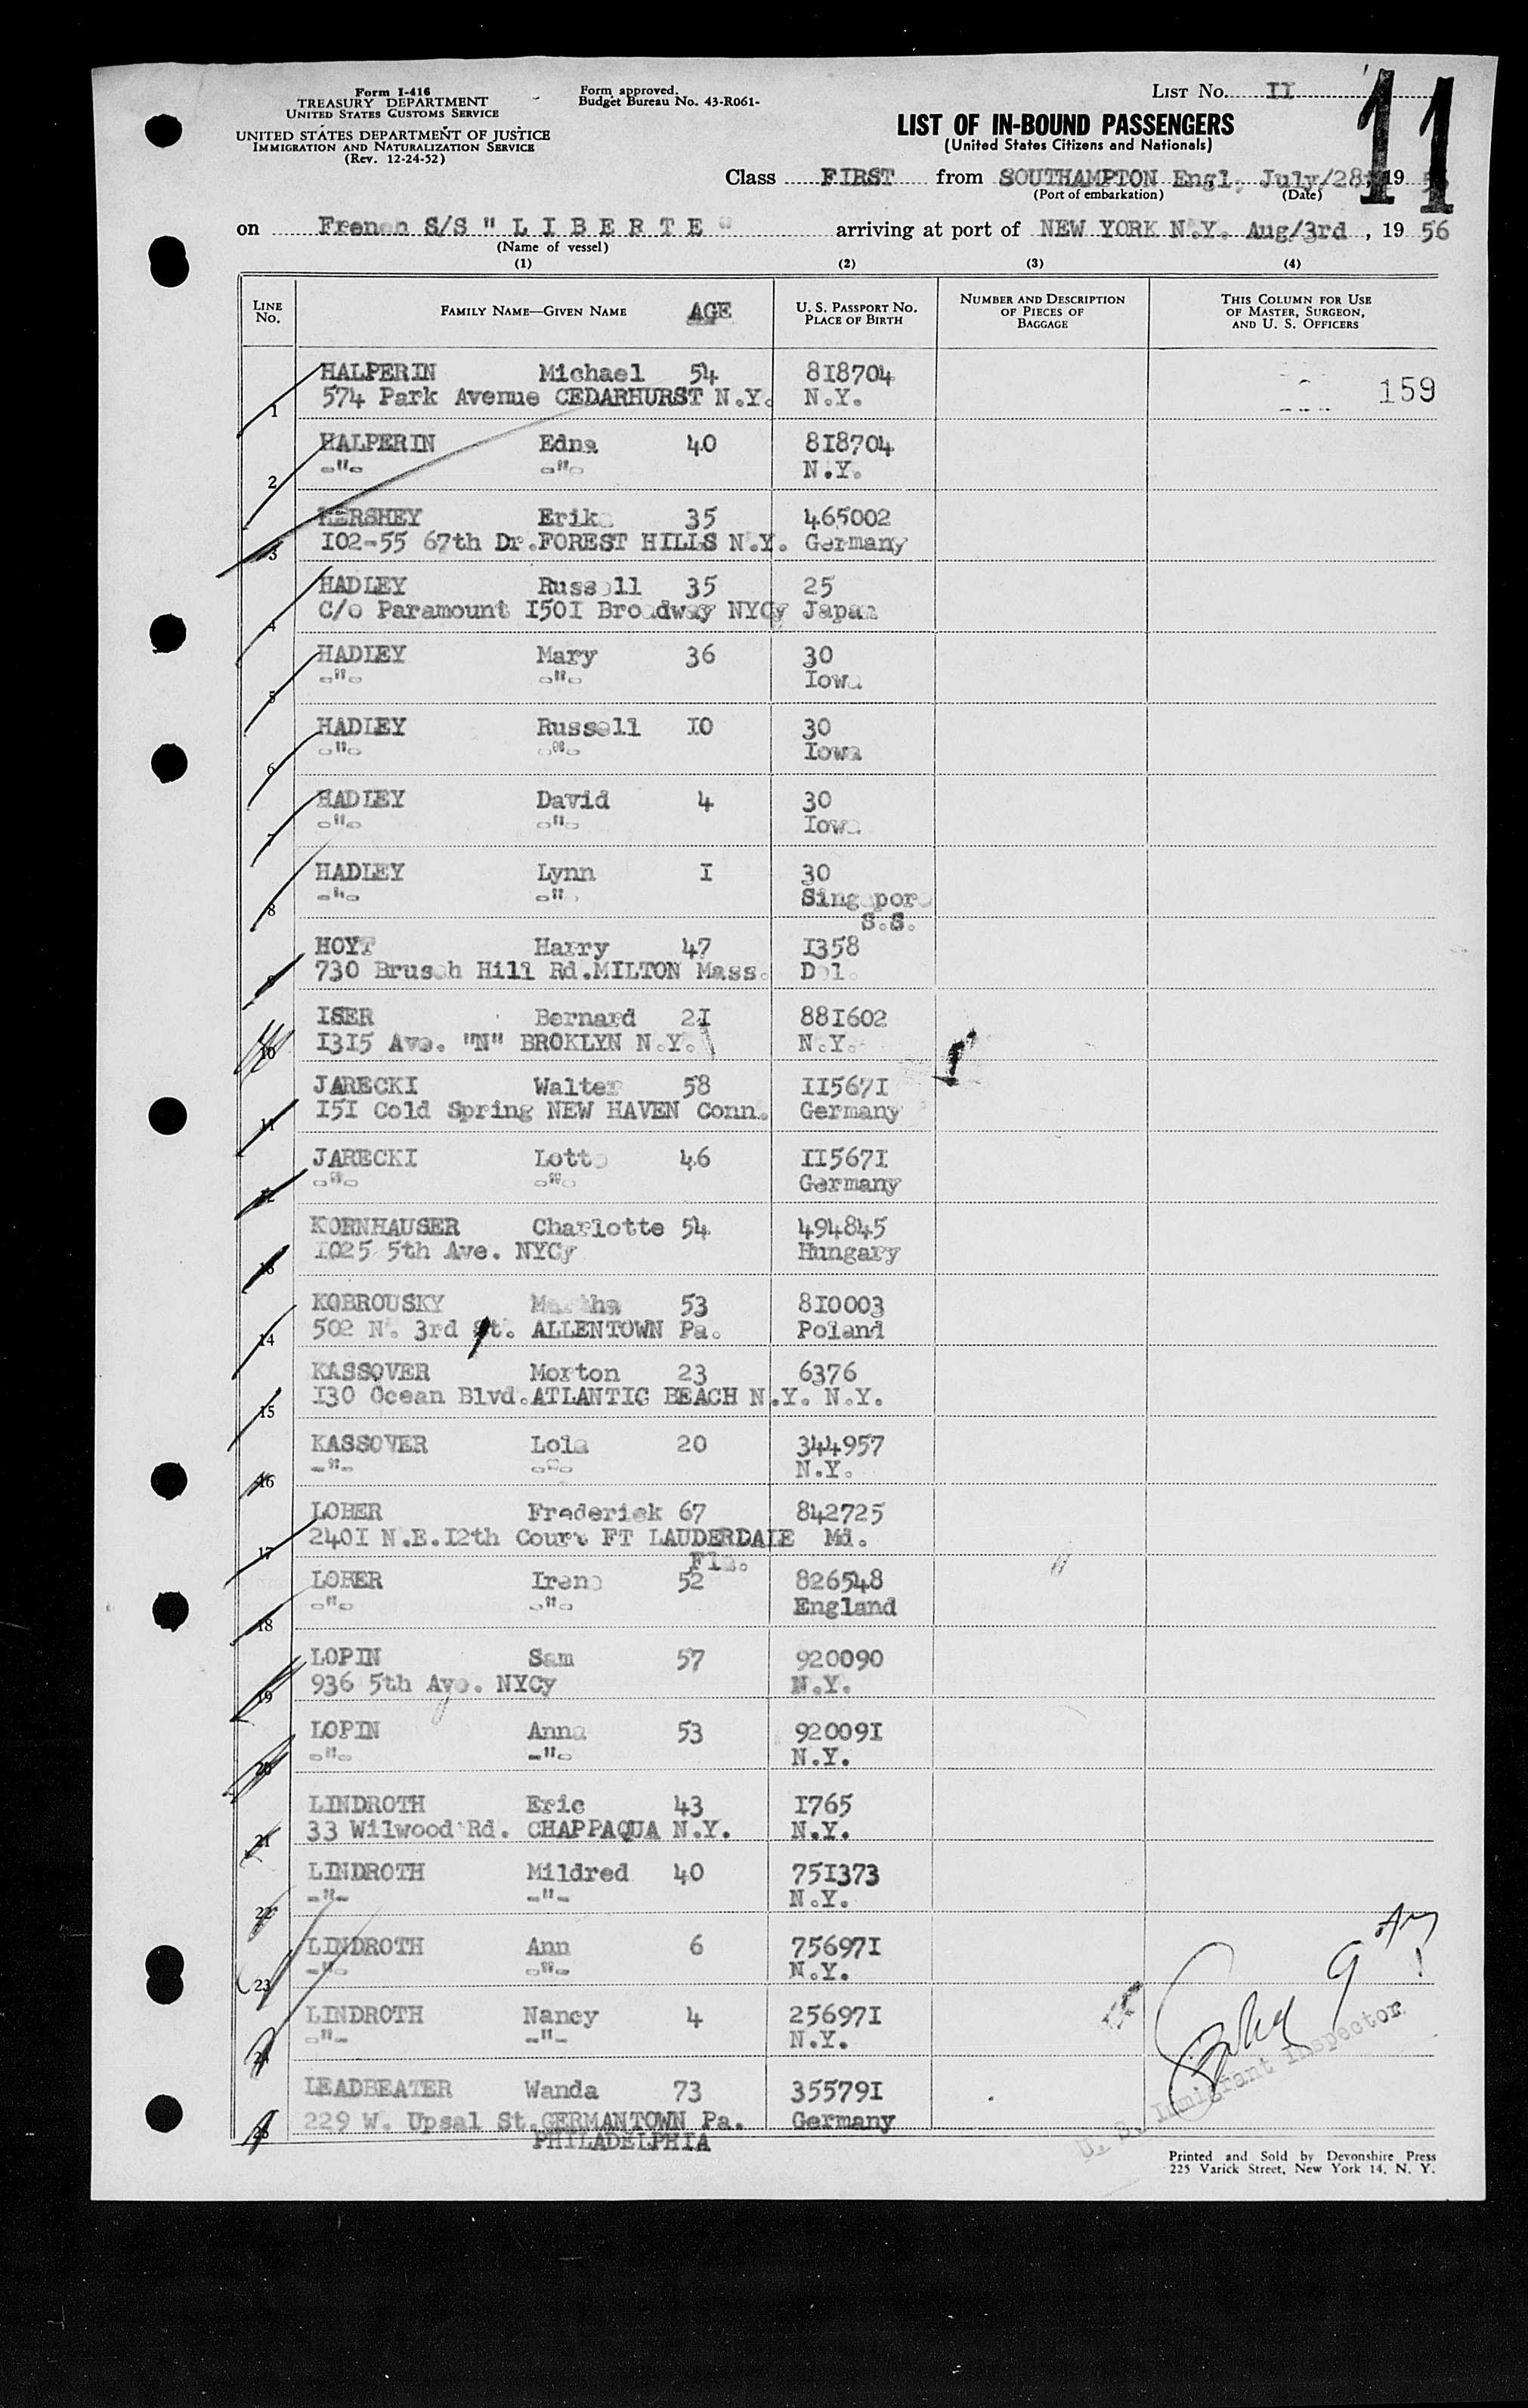 Form I-416
TREASURY DEPARTMENT
UNITED STATES CUSTOMS SERVICE
UNITED STATES DEPARTMENT OF JUSTICE
IMMIGRATION AND NATURALIZATION SERVICE
(Rev. 12-24-52)
Form approved.
Budget Bureau No. 43-R061-
LIST No. II
11
LIST OF IN-BOUND PASSENGERS
(United States Citizens and Nationals)
Class FIRST from SOUTHAMPTON Engl, July/28, 19
(Port of embarkation) (Date)
on French S/S " L I B E R T E " arriving at port of NEW YORK N.Y. Aug/3rd , 19 56
(Name of vessel)
(1) (2) (3) (4)
LINE No. FAMILY NAME—GIVEN NAME AGE U. S. PASSPORT NO. PLACE OF BIRTH NUMBER AND DESCRIPTION OF PIECES OF BAGGAGE THIS COLUMN FOR USE OF MASTER, SURGEON, AND U. S. OFFICERS
HALPERIN Michael 54 818704
1 574 Park Avenue CEDARHURST N.Y. N.Y. 159
HALPERIN Edna 40 818704
2 -"- -"- N.Y.
HERSHEY Erika 35 465002
3 102-55 67th Dr.FOREST HILLS N.Y. Germany
HADLEY Russell 35 25
4 C/o Paramount I50I Broadway NYCy Japan
HADLEY Mary 36 30
5 -"- -"- Iowa
HADLEY Russell IO 30
6 -"- -"- Iowa
HADLEY David 4 30
7 -"- -"- Iowa
HADLEY Lynn I 30
8 -"- -"- Singapore
S.S.
HOYT Harry 47 I358
9 730 Brusch Hill Rd.MILTON Mass. Del.
ISER Bernard 2I 88I602
10 I3I5 Ave. "N" BROKLYN N.Y. N.Y.
JARECKI Walter 58 II567I
11 I5I Cold Spring NEW HAVEN Conn. Germany
JARECKI Lotte 46 II567I
12 -"- -"- Germany
KORNHAUSER Charlotte 54 494845
13 I025 5th Ave. NYCy Hungary
KOBROUSKY Martha 53 8I0003
14 502 N. 3rd St. ALLENTOWN Pa. Poland
KASSOVER Morton 23 6376
15 I30 Ocean Blvd.ATLANTIC BEACH N.Y. N.Y.
KASSOVER Lola 20 344957
16 -"- -"- N.Y.
LOBER Frederick 67 842725
17 240I N.E.I2th Court FT LAUDERDALE Md.
Fla.
LOBER Irene 52 826548
18 -"- -"- England
LOPIN Sam 57 920090
19 936 5th Ave. NYCy N.Y.
LOPIN Anna 53 92009I
20 -"- -"- N.Y.
LINDROTH Eric 43 I765
21 33 Wilwood Rd. CHAPPAQUA N.Y. N.Y.
LINDROTH Mildred 40 75I373
22 -"- -"- N.Y.
LINDROTH Ann 6 75697I
23 -"- -"- N.Y.
LINDROTH Nancy 4 25697I
24 -"- -"- N.Y.
LEADBEATER Wanda 73 35579I
25 229 W. Upsal St.GERMANTOWN Pa. Germany
PHILADELPHIA
U. S. Immigrant Inspector
Printed and Sold by Devonshire Press
225 Varick Street, New York 14, N. Y.